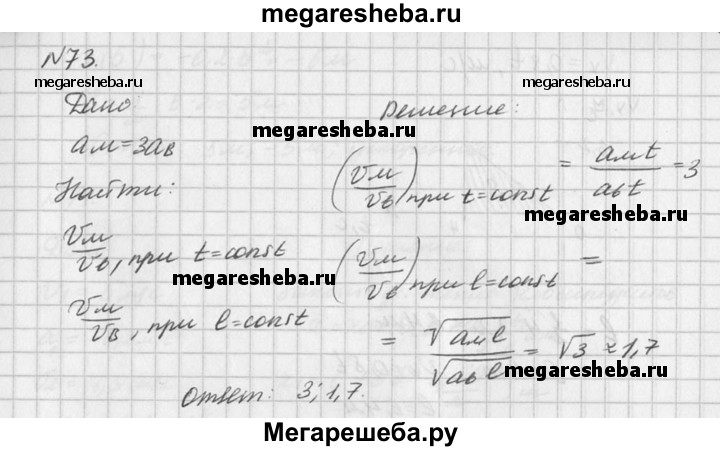 megaresheba.ru
N73.
megaresheba.ru
Дано:
Решение:
megaresheba.ru
aм=3aв
Найти:
(Vм/Vв) при t=const = aмt/aвt =3
megaresheba.ru
Vм/Vв, при t=const
megaresheba.ru
(Vм/Vв) при l=const =
Vм/Vв, при l=const
= √aмl/√aвl = √3 ≈ 1,7
megaresheba.ru
Ответ: 3; 1,7.
Мегарешеба.ру